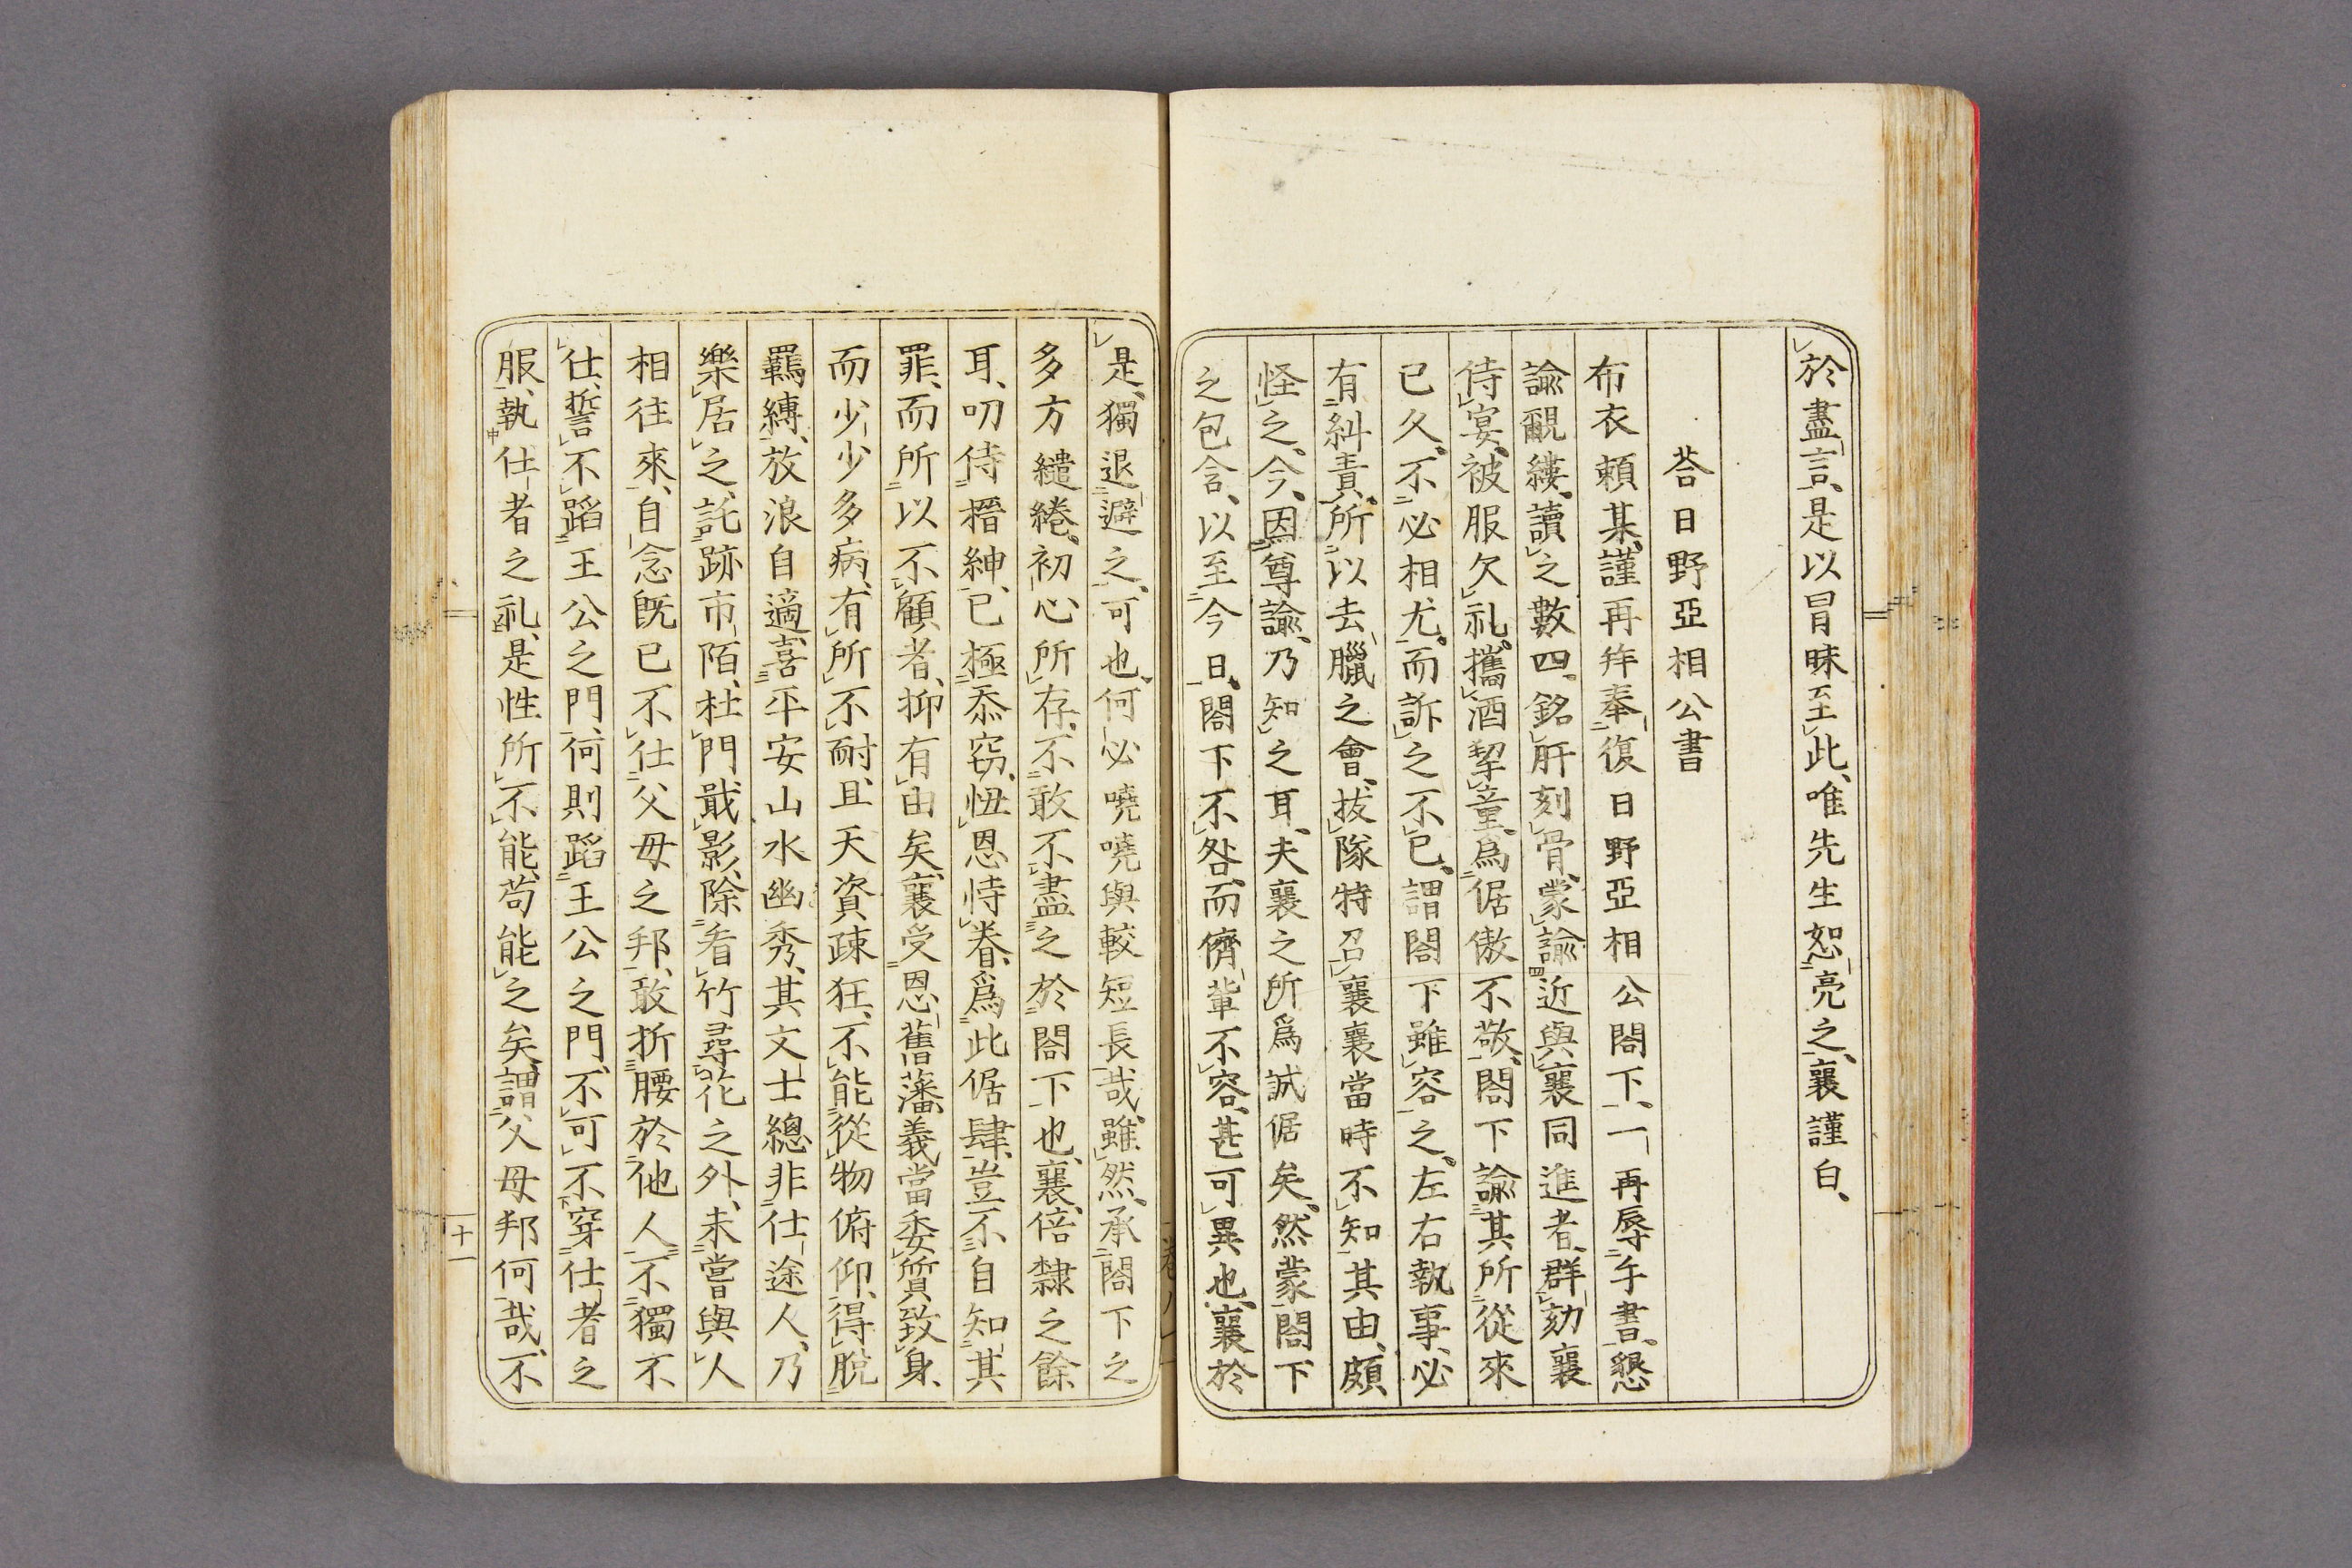 於盡言、是以冒昧至此、唯先生恕亮之、襄謹白、
荅日野亞相公書
布衣賴某、謹再拜奉復日野亞相公閤下、一再辱手書、懇
諭覼縷、讀之數四、銘肝刻骨、蒙諭近與襄同進者、群劾襄
侍宴、被服欠礼、攜酒挈童、爲倨傲不敬、閤下諭其所從來
已久、不必相尤、而訴之不已、謂閤下雖容之、左右執事、必
有糾責、所以去臘之會、拔隊特召襄、襄當時不知其由、頗
怪之、今因尊諭、乃知之耳、夫襄之所爲誠倨矣、然蒙閤下
之包含、以至今日、閤下不咎、而儕輩不容、甚可異也、襄於
是、獨退避之、可也、何必嘵嘵與較短長哉、雖然、承閤下之
多方繾綣、初心所存、不敢不盡之於閤下也、襄、倍隸之餘
耳、叨侍搢紳、已極忝竊、忸恩恃眷、爲此倨肆、豈不自知其
罪、而所以不顧者、抑有由矣、襄受恩舊藩、義當委質致身、
而少少多病、有所不耐、且天資疎狂、不能從物俯仰、得脫
羈縛、放浪自適、喜平安山水幽秀、其文士總非仕途人、乃
樂居之、託跡市陌、杜門戢影、除看竹尋花之外、未嘗與人
相往來、自念既已不仕父母之邦、敢折腰於他人、不獨不
仕、誓不蹈王公之門、何則蹈王公之門、不可不穿仕者之
服、執仕者之礼、是性所不能、苟能之矣、謂父母邦何哉、不
十一